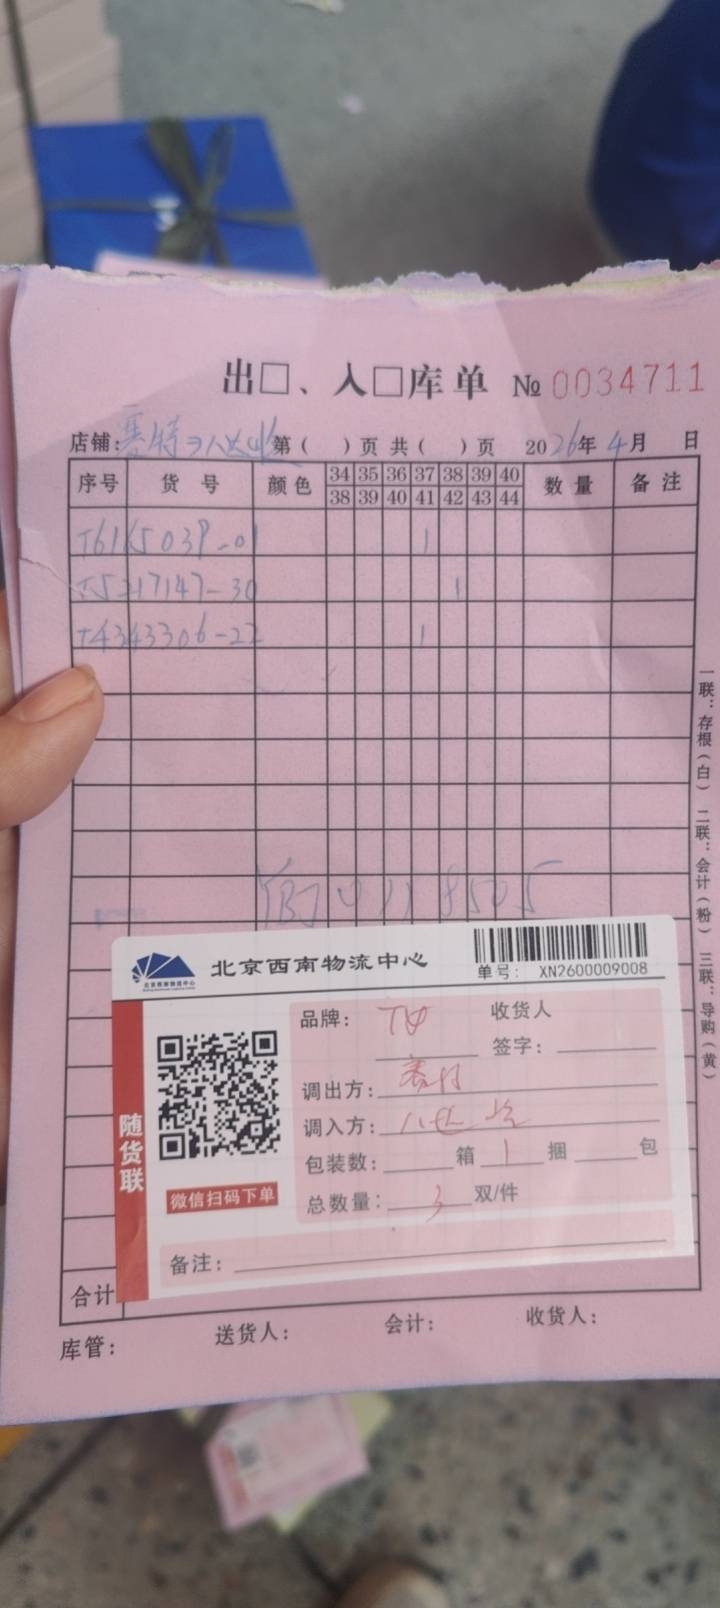 出□、入□库单 № 0034711
店铺: 赛特→八达岭 第( )页 共( )页 2026年4月 日
序号 货号 颜色 34 35 36 37 38 39 40 数量 备注
38 39 40 41 42 43 44
T6165039-01 1
T5217147-30 1
T4343306-22 1
一联：存根(白) 二联：会计(粉) 三联：导购(黄)
北京西南物流中心
单号: XN2600009008
随货联
微信扫码下单
品牌: 收货人
签字:
调出方: 赛特
调入方: 八达岭
包装数: 箱 1 捆 包
总数量: 3 双/件
备注:
合计
库管: 送货人: 会计: 收货人: